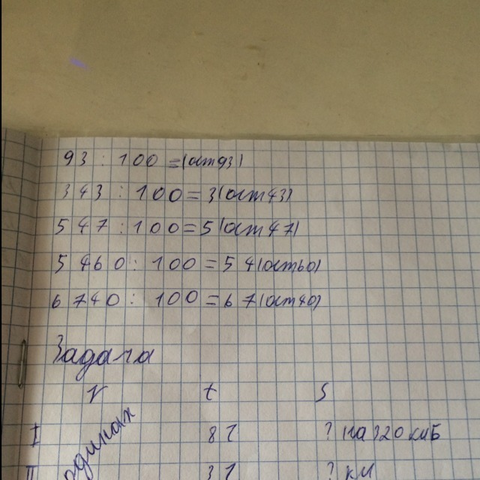 93 : 100 = (ост 93)
343 : 100 = 3 (ост 43)
547 : 100 = 5 (ост 47)
5 460 : 100 = 54 (ост 60)
6 740 : 100 = 67 (ост 40)
Задача
V t S
I 8 ч ? на 320 км Б
одинак
II 3 ч ? км